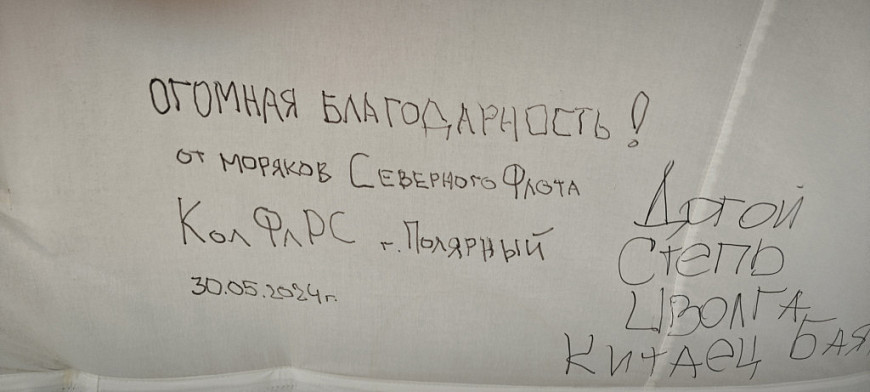 ОГОМНАЯ БЛАГОДАРНОСТЬ!
от моряков Северного Флота
КолФлРС г. Полярный
30.05.2024г.
Дотой
Степь
ИВОЛГА
Китаец Бая